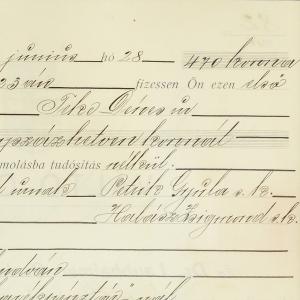 június hó 28 470 korona
23 án fizessen Ön ezen első
Teke Dénes úr
yszázhetven koronát
molásba tudósítás nélkül.
l urnak Petrik Gyula s.k.
Halász Zsigmond s.k.